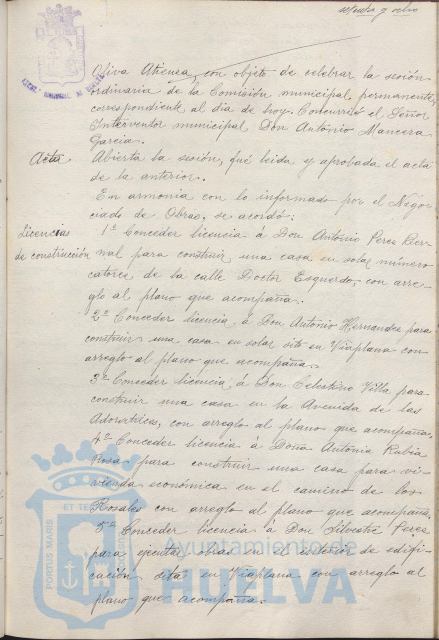 setenta y ocho
Oliva Atienza, con objeto de celebrar la sesión
ordinaria de la Comisión municipal permanente,
correspondiente al dia de hoy. Concurrió el Señor
Interventor municipal Don Antonio Mancera
Garcia.
Acta. Abierta la sesión, fué leida y aprobada el acta
de la anterior.
En armonia con lo informado por el Nego-
ciado de Obras, se acordó:
Licencias de construcción
1º Conceder licencia á Don Antonio Perez Ber-
nal para construir una casa en solar número
catorce de la calle Doctor Esquerdo, con arre-
glo al plano que acompaña.
2º Conceder licencia, á Don Antonio Hernandez para
construir una casa en solar sito en Viaplana con
arreglo al plano que acompaña.
3º Conceder licencia, á Don Celestino Villa para
construir una casa en la Avenida de las
Adoratrices, con arreglo al plano que acompaña.
4º Conceder licencia á Doña Antonia Rubia
Rosa, para construir una casa para vi-
vienda económica en el camino de los
Rosales con arreglo al plano que acompaña.
5º Conceder licencia á Don Silvestre Perez
para ejecutar obras en el interior de edifi-
cación sita en Viaplana con arreglo al
plano que acompaña.
PORTUS MARIS
ET TE
Ayuntamiento de
HUELVA